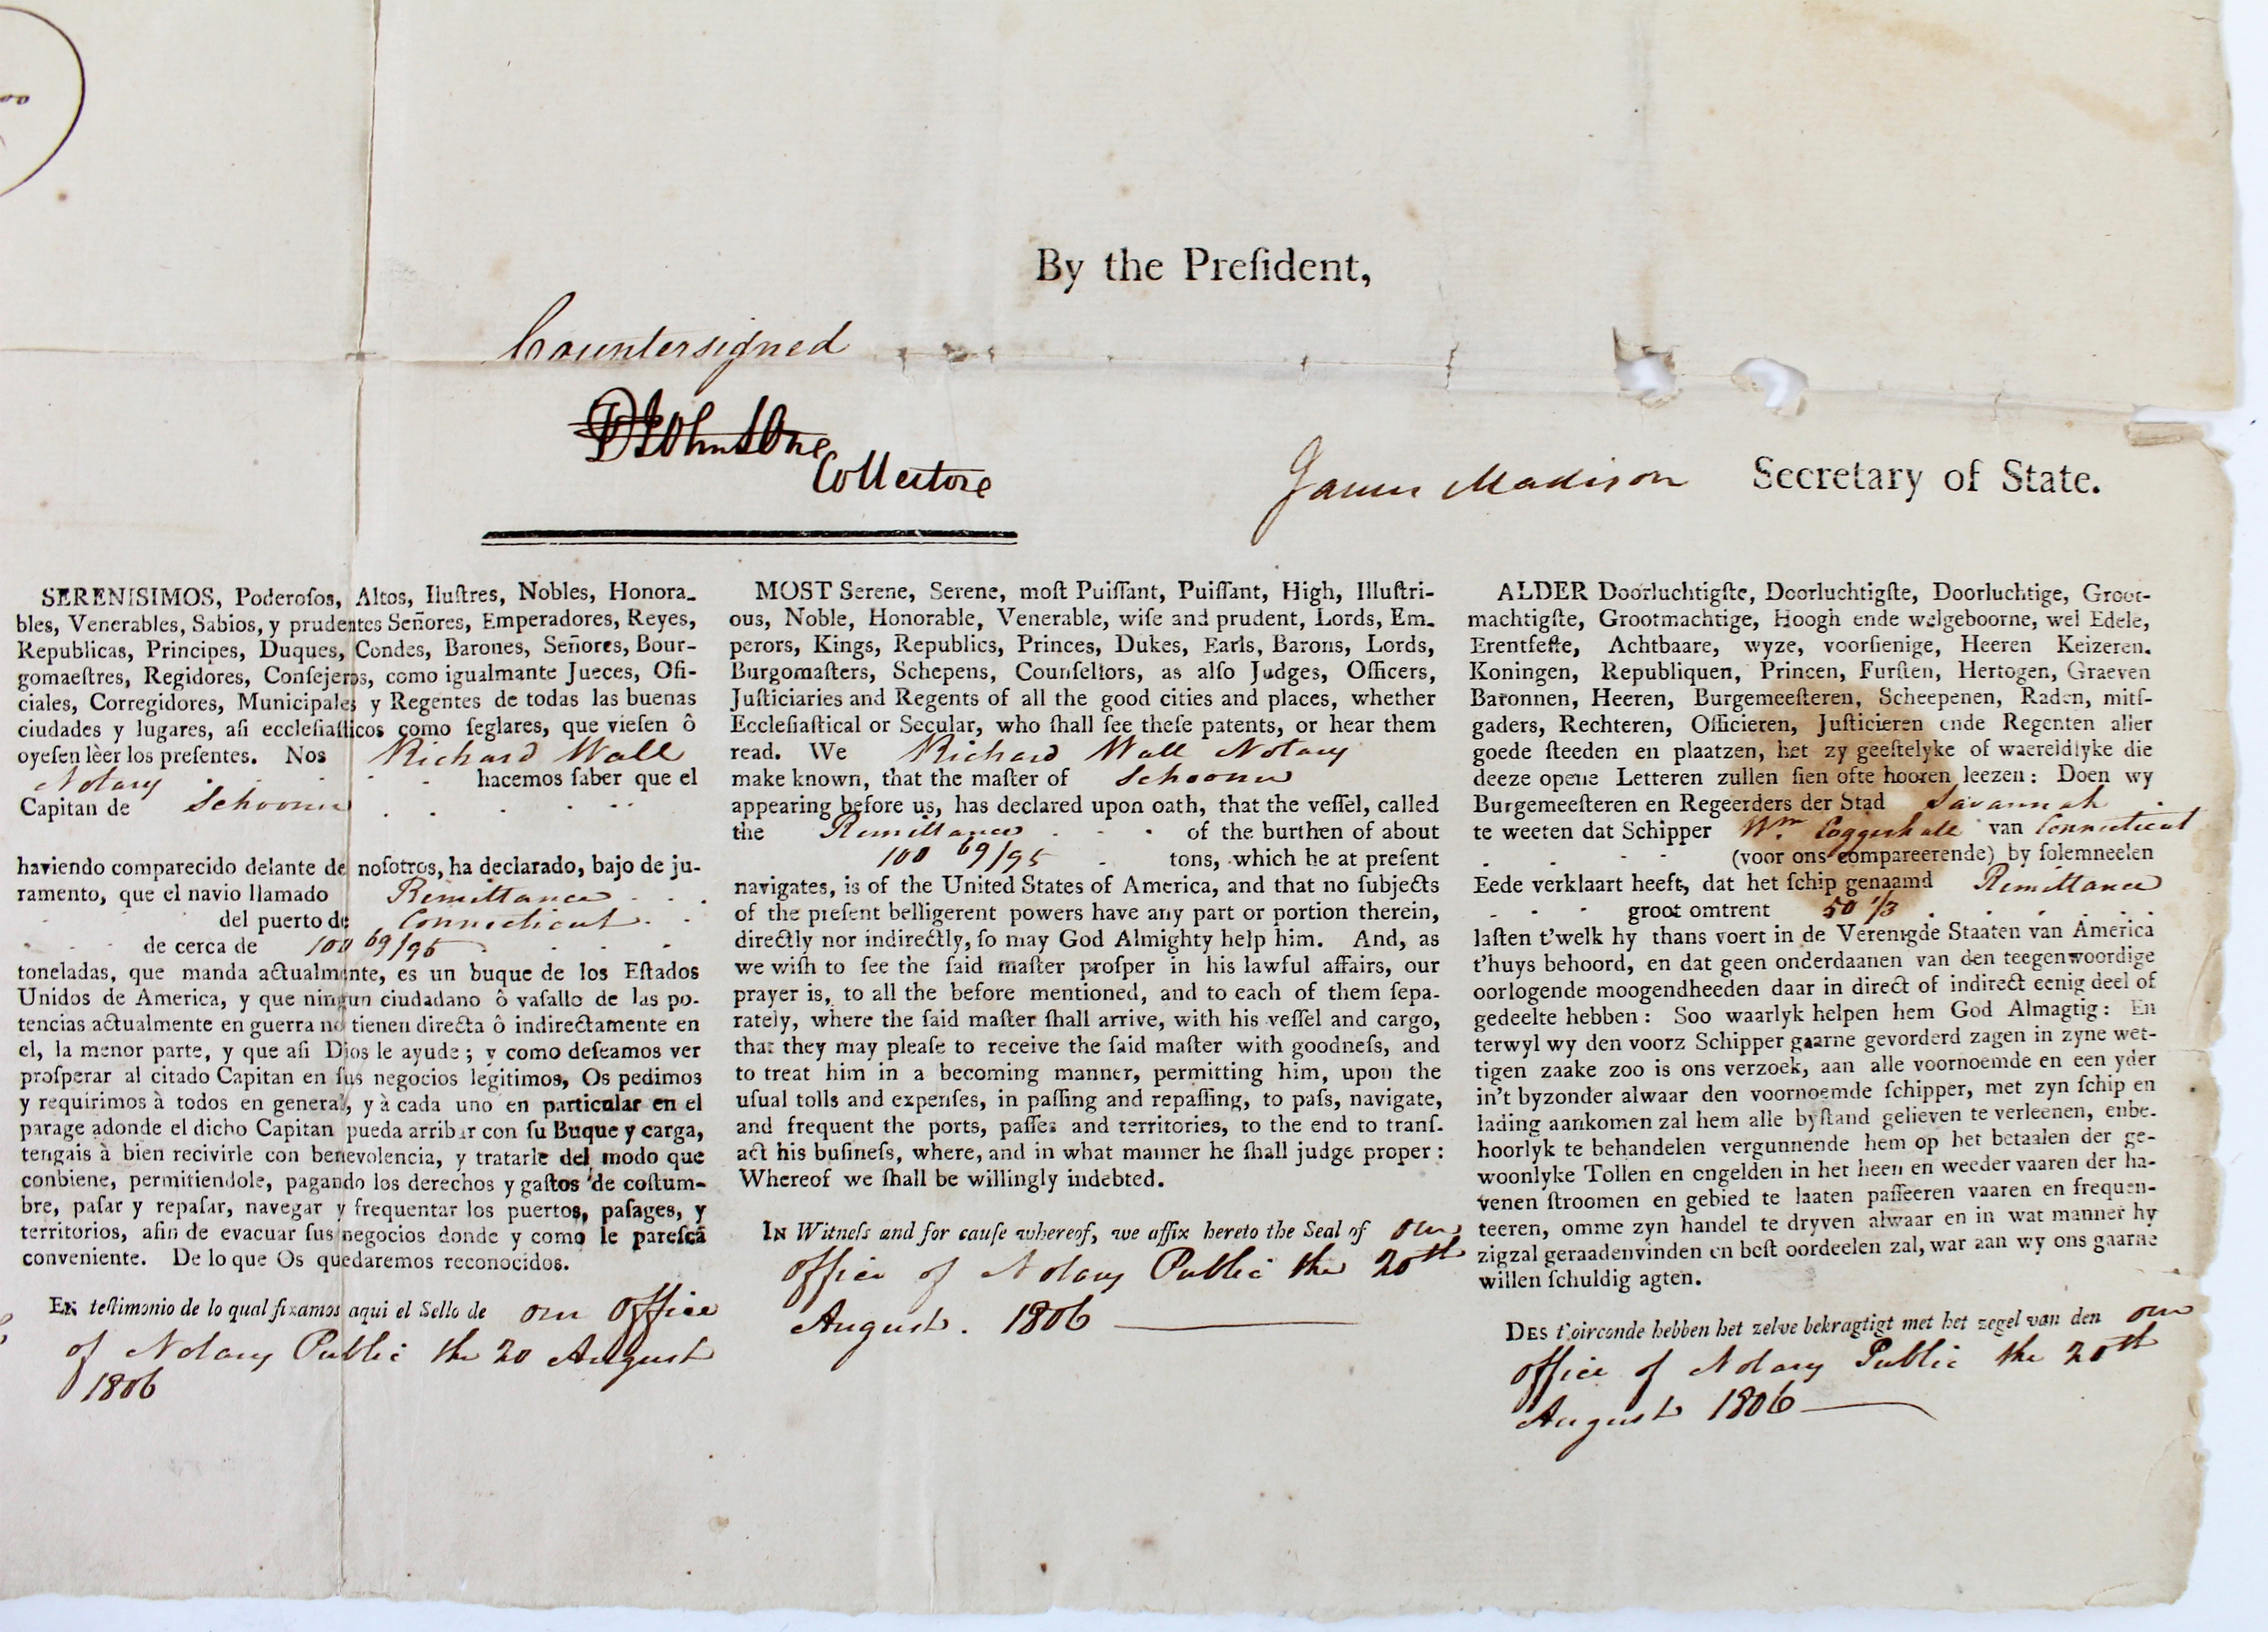 By the Preſident,
Countersigned
Johnstone
Collector
James Madison Secretary of State.
SERENISIMOS, Poderoſos, Altos, Iluſtres, Nobles, Honora-
bles, Venerables, Sabios, y prudentes Señores, Emperadores, Reyes,
Republicas, Principes, Duques, Condes, Barones, Señores, Bour-
gomaeſtres, Regidores, Conſejeros, como igualmante Jueces, Ofi-
ciales, Corregidores, Municipales y Regentes de todas las buenas
ciudades y lugares, aſi eccleſiaſticos como ſeglares, que vieſen ô
oyeſen lèer los preſentes. Nos Richard Wall
Notary hacemos ſaber que el
Capitan de Schooner
haviendo comparecido delante de noſotros, ha declarado, bajo de ju-
ramento, que el navio llamado Remittance
del puerto de Connecticut
de cerca de 100 69/95
toneladas, que manda actualmente, es un buque de los Eſtados
Unidos de America, y que ningun ciudadano ô vaſallo de las po-
tencias actualmente en guerra no tienen directa ô indirectamente en
el, la menor parte, y que aſi Dios le ayude ; y como deſeamos ver
proſperar al citado Capitan en ſus negocios legitimos, Os pedimos
y requirimos à todos en general, y à cada uno en particular en el
parage adonde el dicho Capitan pueda arribar con ſu Buque y carga,
tengais à bien recivirle con benevolencia, y tratarle del modo que
conbiene, permitiendole, pagando los derechos y gaſtos de coſtum-
bre, paſar y repaſar, navegar y frequentar los puertos, paſages, y
territorios, afin de evacuar ſus negocios donde y como le pareſcâ
conveniente. De lo que Os quedaremos reconocidos.
EN teſtimonio de lo qual fixamos aqui el Sello de our Office
of Notary Public the 20 August
1806
MOST Serene, Serene, moſt Puiſſant, Puiſſant, High, Illuſtri-
ous, Noble, Honorable, Venerable, wiſe and prudent, Lords, Em-
perors, Kings, Republics, Princes, Dukes, Earls, Barons, Lords,
Burgomaſters, Schepens, Counſellors, as alſo Judges, Officers,
Juſticiaries and Regents of all the good cities and places, whether
Eccleſiaſtical or Secular, who ſhall ſee theſe patents, or hear them
read. We Richard Wall Notary
make known, that the maſter of Schooner
appearing before us, has declared upon oath, that the veſſel, called
the Remittance of the burthen of about
100 69/95 tons, which he at preſent
navigates, is of the United States of America, and that no ſubjects
of the preſent belligerent powers have any part or portion therein,
directly nor indirectly, ſo may God Almighty help him. And, as
we wiſh to ſee the ſaid maſter proſper in his lawful affairs, our
prayer is, to all the before mentioned, and to each of them ſepa-
rately, where the ſaid maſter ſhall arrive, with his veſſel and cargo,
that they may pleaſe to receive the ſaid maſter with goodneſs, and
to treat him in a becoming manner, permitting him, upon the
uſual tolls and expenſes, in paſſing and repaſſing, to paſs, navigate,
and frequent the ports, paſſes and territories, to the end to tranſ-
act his buſineſs, where, and in what manner he ſhall judge proper :
Whereof we ſhall be willingly indebted.
IN Witneſs and for cauſe whereof, we affix hereto the Seal of our
office of Notary Public the 20th
August. 1806
ALDER Doorluchtigſte, Doorluchtigſte, Doorluchtige, Groot-
machtigſte, Grootmachtige, Hoogh ende welgeboorne, wel Edele,
Erentfeſte, Achtbaare, wyze, voorſienige, Heeren Keizeren.
Koningen, Republiquen, Princen, Furſten, Hertogen, Graeven
Baronnen, Heeren, Burgemeeſteren, Scheepenen, Raden, mitſ-
gaders, Rechteren, Officieren, Juſticieren ende Regenten aller
goede ſteeden en plaatzen, het zy geeſtelyke of waereldlyke die
deeze opene Letteren zullen ſien ofte hooren leezen : Doen wy
Burgemeeſteren en Regeerders der Stad Savannah
te weeten dat Schipper Wm Coggeshall van Connecticut
(voor ons compareerende) by ſolemneelen
Eede verklaart heeft, dat het ſchip genaamd Remittance
groot omtrent 50 1/3
laſten t'welk hy thans voert in de Verenigde Staaten van America
t'huys behoord, en dat geen onderdaanen van den teegenwoordige
oorlogende moogendheeden daar in direct of indirect eenig deel of
gedeelte hebben : Soo waarlyk helpen hem God Almagtig : En
terwyl wy den voorz Schipper gaarne gevorderd zagen in zyne wet-
tigen zaake zoo is ons verzoek, aan alle voornoemde en een yder
in't byzonder alwaar den voornoemde ſchipper, met zyn ſchip en
lading aankomen zal hem alle byſtand gelieven te verleenen, enbe-
hoorlyk te behandelen vergunnende hem op het betaalen der ge-
woonlyke Tollen en engelden in het heen en weeder vaaren der ha-
venen ſtroomen en gebied te laaten paſſeeren vaaren en frequen-
teeren, omme zyn handel te dryven alwaar en in wat manner hy
zigzal geraadenvinden en beſt oordeelen zal, war aan wy ons gaarne
willen ſchuldig agten.
DES t'oirconde hebben het zelve bekragtigt met het zegel van den our
office of Notary Public the 20th
August 1806